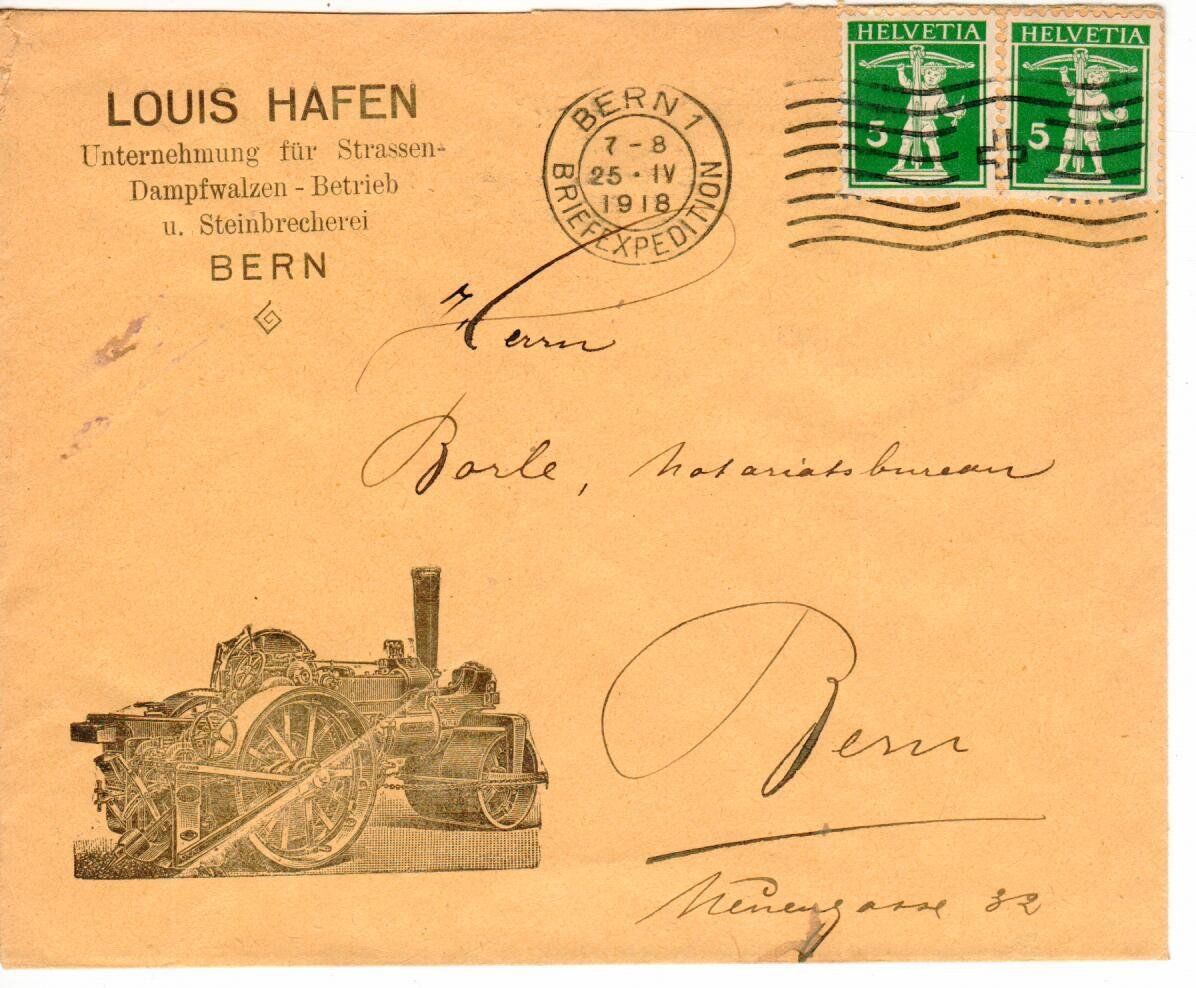 LOUIS HAFEN
Unternehmung für Strassen-
Dampfwalzen - Betrieb
u. Steinbrecherei
BERN
BERN 1
7 - 8
25 · IV
1918
BRIEFEXPEDITION
HELVETIA
5
HELVETIA
5
Herrn
Borle, Notariatsbureau
Bern
Neuengasse 32